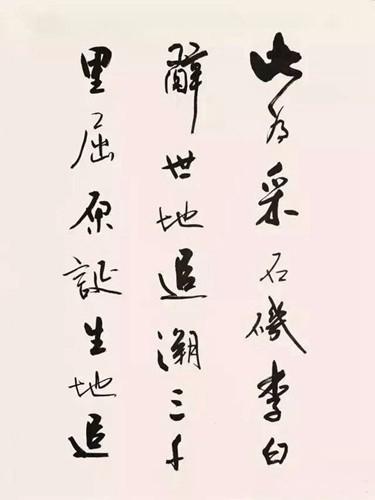 此为采石矶李白
辞世地追溯三千
里屈原诞生地追